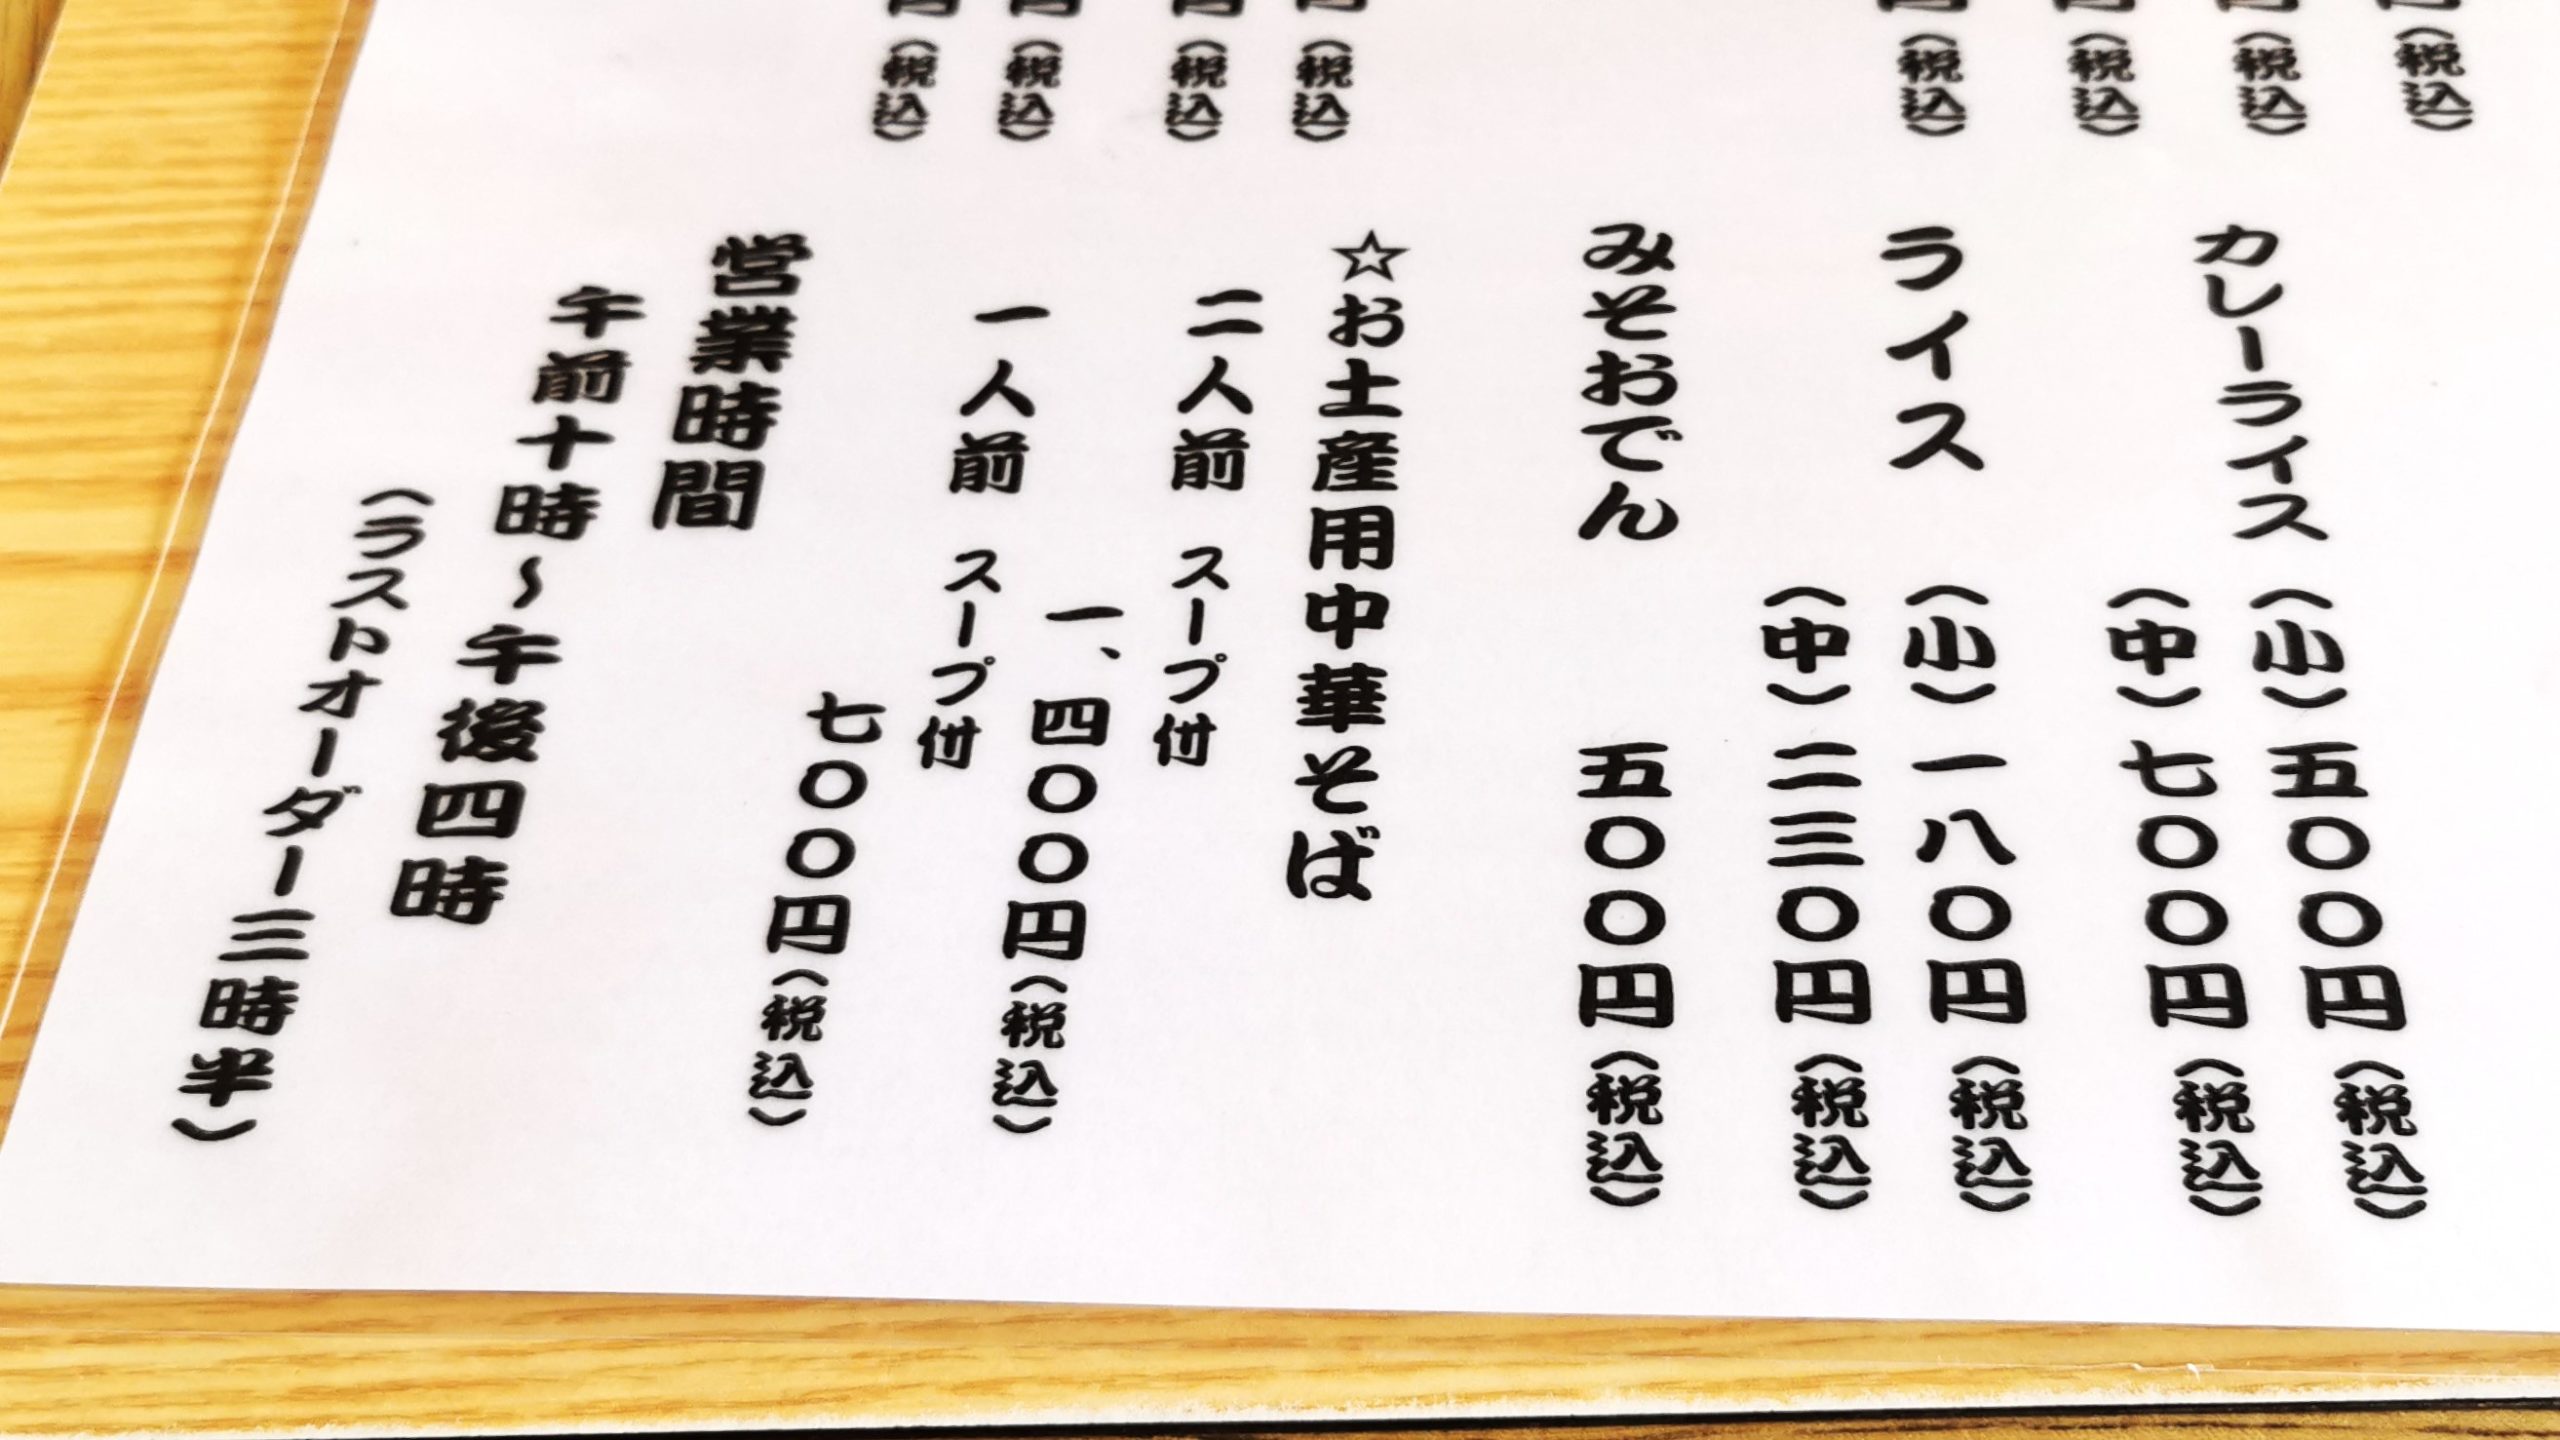 円（税込）
円（税込）
円（税込）
円（税込）
円（税込）
円（税込）
円（税込）
円（税込）
カレーライス（小）五〇〇円（税込）
（中）七〇〇円（税込）
ライス（小）一八〇円（税込）
（中）二三〇円（税込）
みそおでん 五〇〇円（税込）
☆お土産用中華そば
二人前 スープ付
一、四〇〇円（税込）
一人前 スープ付
七〇〇円（税込）
営業時間
午前十時～午後四時
（ラストオーダー三時半）